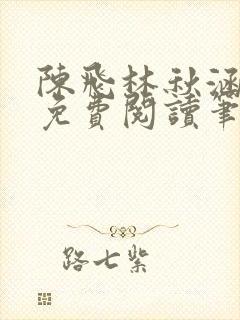 陳飛林秋涵
免費閱讀筆
路七紫